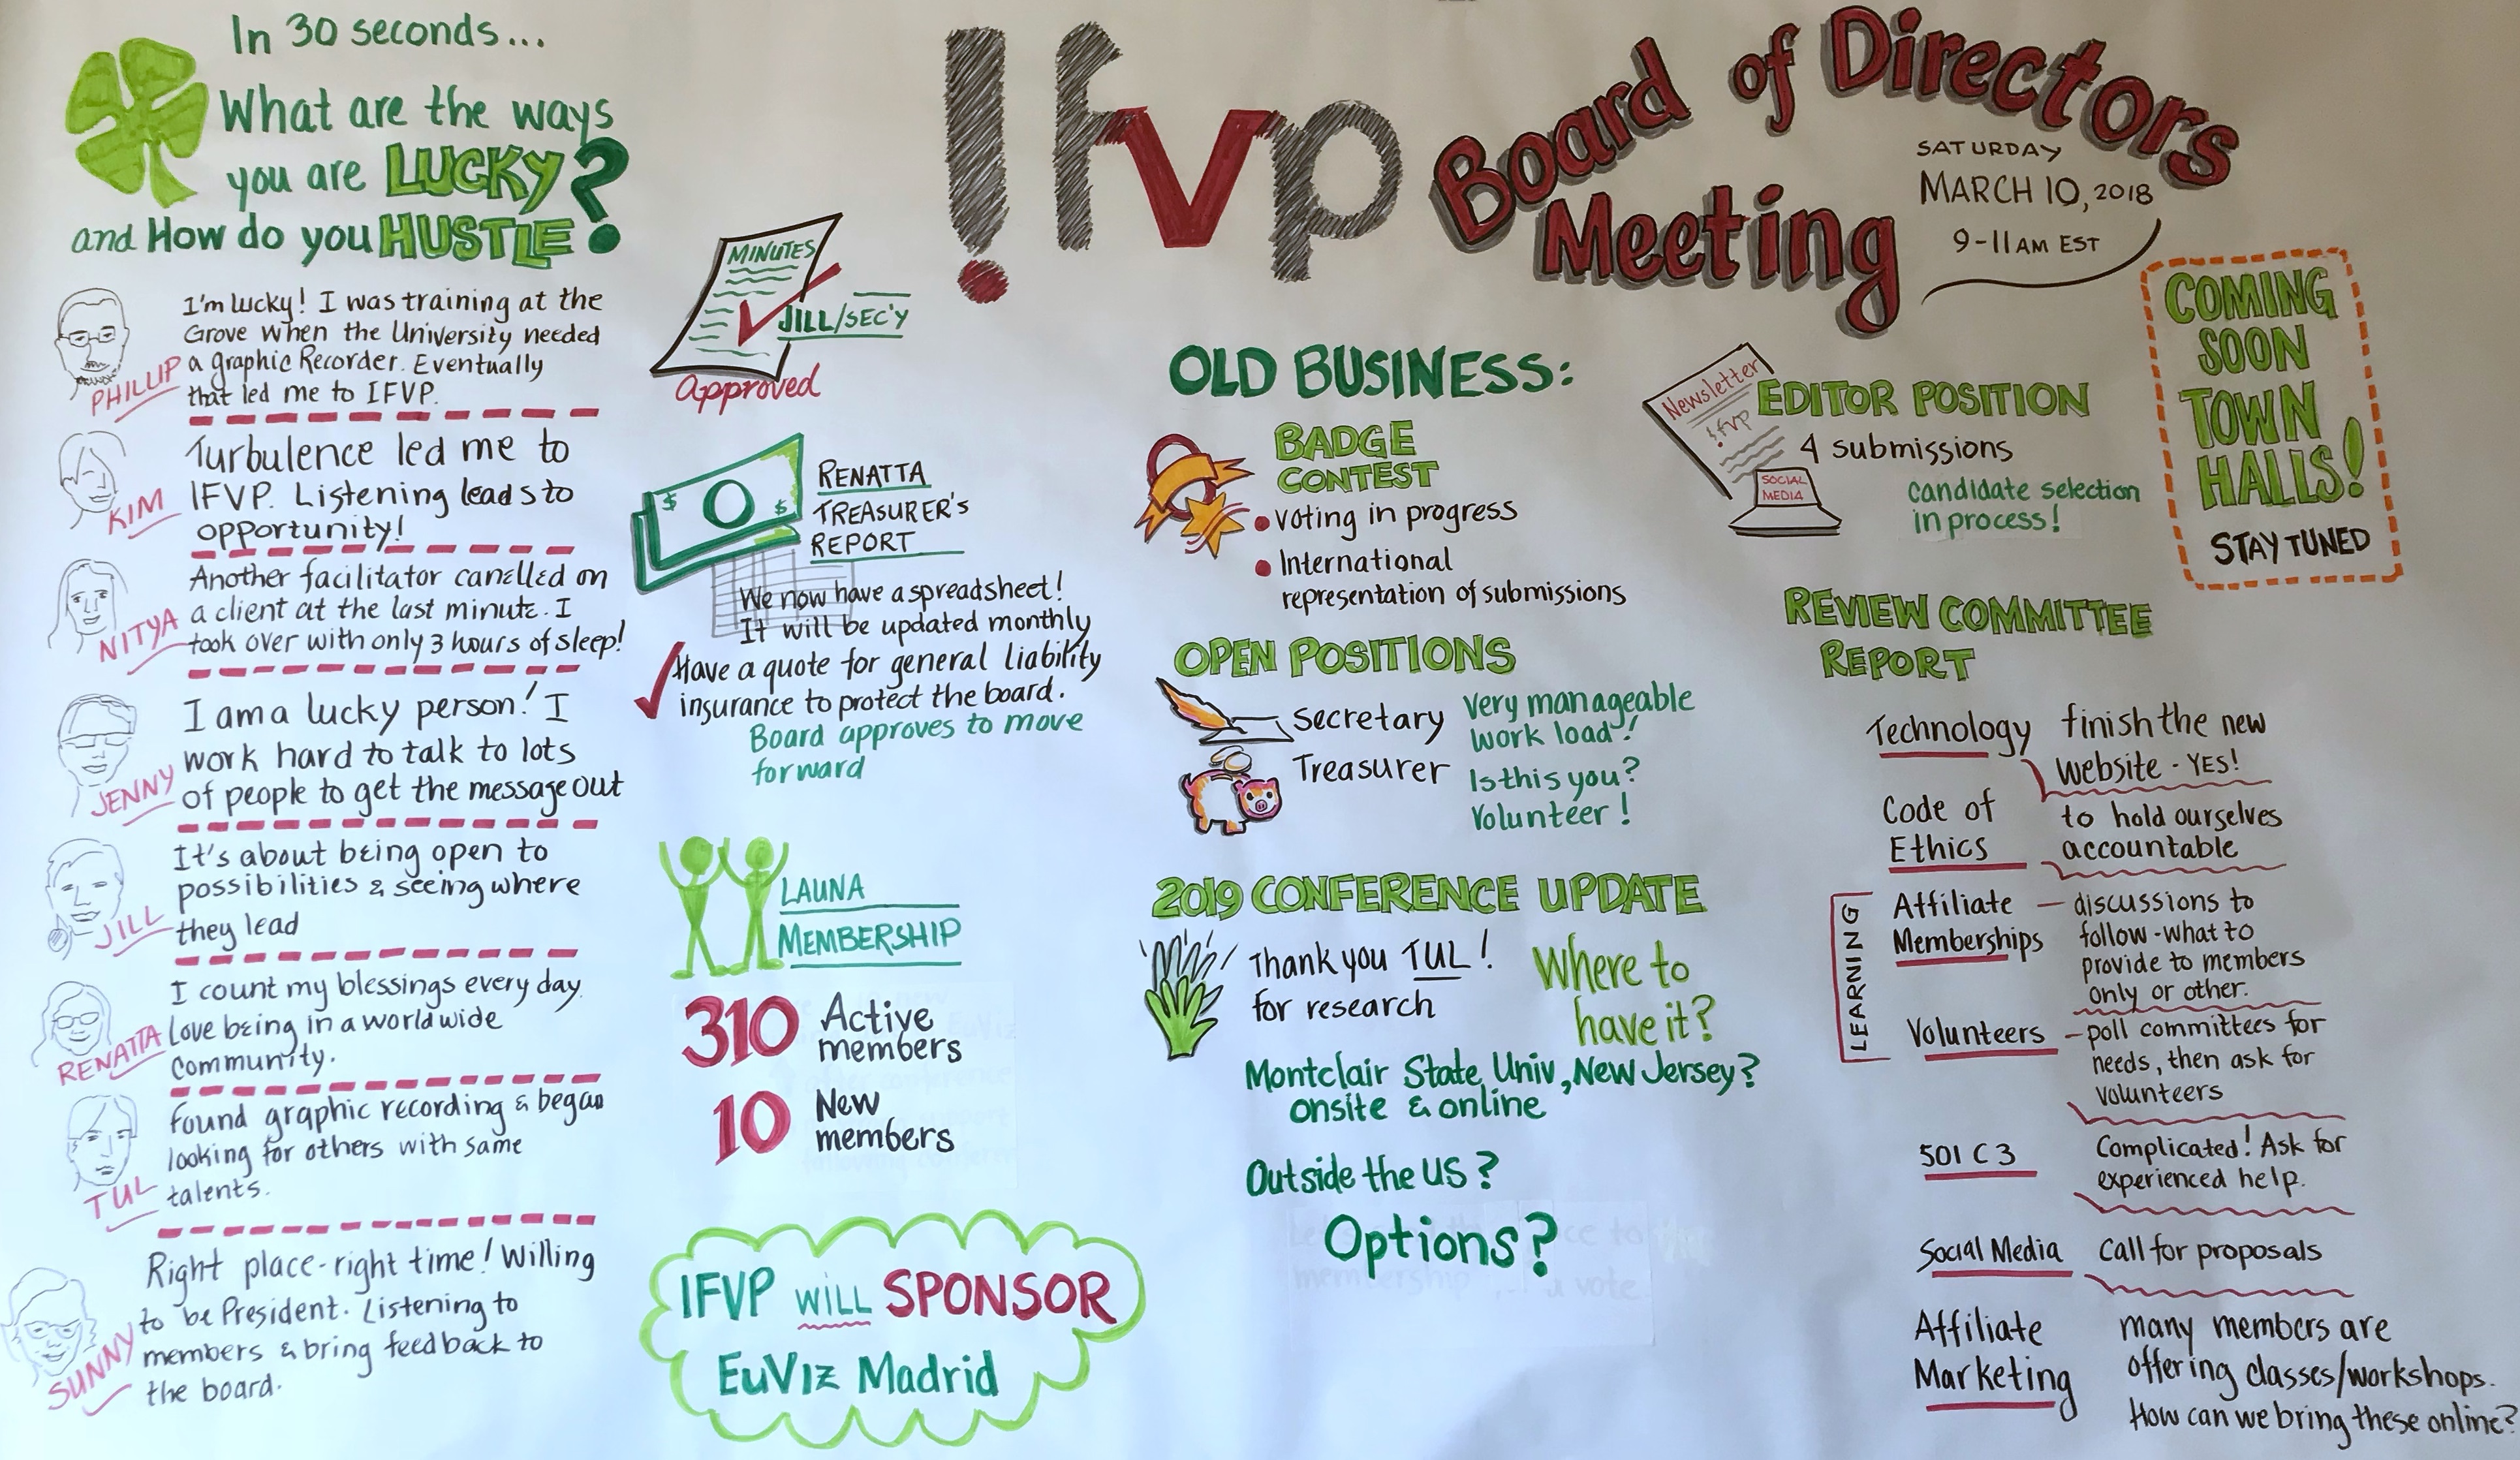 In 30 seconds...
What are the ways
you are LUCKY?
and How do you HUSTLE
I'm lucky! I was training at the
Grove when the University needed
a graphic Recorder. Eventually
that led me to IFVP.
PHILLIP
Turbulence led me to
IFVP. Listening leads to
opportunity!
KIM
Another facilitator canclled on
a client at the last minute. I
took over with only 3 hours of sleep!
NITYA
I am a lucky person! I
work hard to talk to lots
of people to get the message out
JENNY
It's about being open to
possibilities & seeing where
they lead
JILL
I count my blessings every day.
Love being in a worldwide
community.
RENATTA
Found graphic recording & began
looking for others with same
talents.
TUL
Right place-right time! Willing
to be President. Listening to
members & bring feedback to
the board.
SUNNY
!fvp
Board of Directors
Meeting
SATURDAY
MARCH 10, 2018
9-11 AM EST
MINUTES
JILL/SEC'Y
Approved
$ $
RENATTA
TREASURER'S
REPORT
We now have a spreadsheet!
It will be updated monthly
Have a quote for general liability
insurance to protect the board.
Board approves to move
forward
LAUNA
MEMBERSHIP
310 Active
members
10 New
members
IFVP WILL SPONSOR
EuViz Madrid
OLD BUSINESS:
BADGE
CONTEST
• Voting in progress
• International
representation of submissions
OPEN POSITIONS
Secretary
Treasurer
Very manageable
work load!
Is this you?
Volunteer!
2019 CONFERENCE UPDATE
Thank you TUL!
for research
Where to
have it?
Montclair State Univ, New Jersey?
onsite & online
Outside the US?
Options?
Newsletter
!fvp
SOCIAL
MEDIA
EDITOR POSITION
4 submissions
candidate selection
in process!
COMING
SOON
TOWN
HALLS!
STAY TUNED
REVIEW COMMITTEE
REPORT
Technology
finish the new
website - YES!
Code of
Ethics
to hold ourselves
accountable
LEARNING
Affiliate
Memberships
— discussions to
follow - what to
provide to members
only or other.
Volunteers
— poll committees for
needs, then ask for
volunteers
501 C 3
Complicated! Ask for
experienced help.
Social Media
Call for proposals
Affiliate
Marketing
many members are
offering classes/workshops.
How can we bring these online?